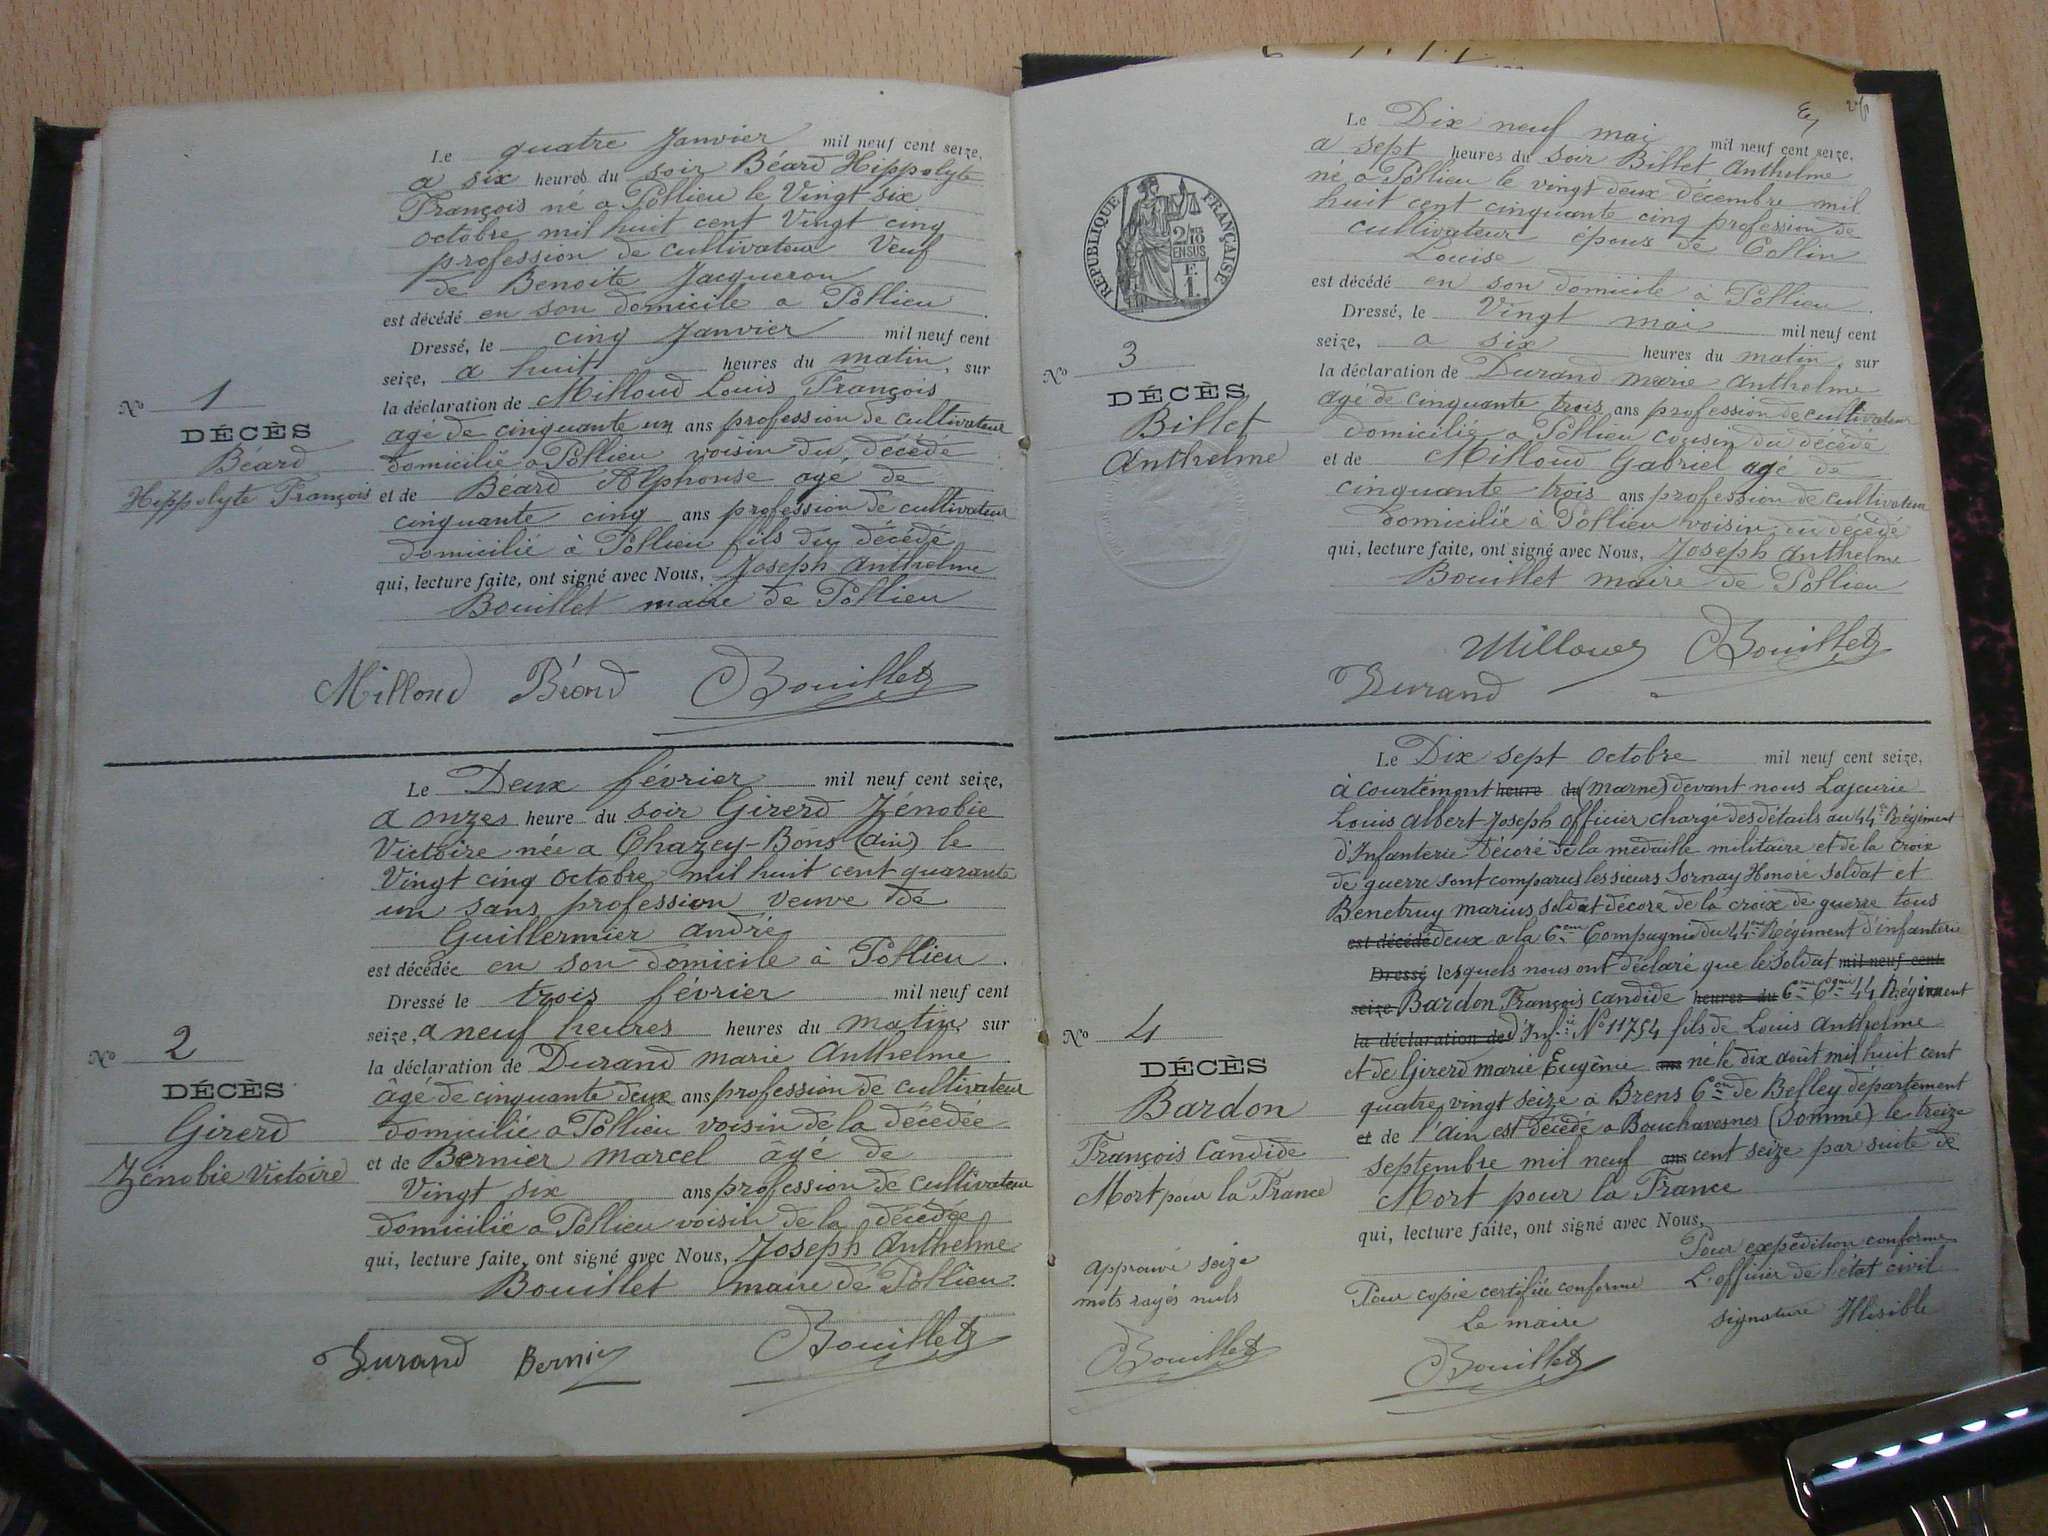 Le quatre Janvier mil neuf cent seize,
a six heures du soir Béard Hippolyte
François né a Pollieu le Vingt six
octobre mil huit cent Vingt cinq
profession de cultivateur Veuf
de Benoite Jacqueron
est décédé en son domicile a Pollieu.
Dressé, le cinq Janvier mil neuf cent
seize, a huit heures du matin, sur
la déclaration de Milloud Louis François
agé de cinquante un ans profession de cultivateur
domicilié a Pollieu voisin du décédé
et de Béard Alphonse agé de
cinquante cinq ans profession de cultivateur
domicilié à Pollieu fils du décédé
qui, lecture faite, ont signé avec Nous, Joseph Anthelme
Bouillet maire de Pollieu
Nº 1
DÉCÈS
Béard
Hippolyte François
Milloud Béard Bouillet
Le Deux février mil neuf cent seize,
a onzes heure du soir Girerd Zénobie
Victoire née a Chazey-Bons (ain) le
Vingt cinq octobre mil huit cent quarante
un sans profession veuve de
Guillermier andré
est décédée en son domicile à Pollieu.
Dressé le trois février mil neuf cent
seize, a neuf heures heures du matin, sur
la déclaration de Durand marie Anthelme
âgé de cinquante deux ans profession de cultivateur
domicilié a Pollieu voisin de la décédée
et de Bernier marcel âgé de
Vingt six ans profession de cultivateur
domicilié a Pollieu voisin de la décédée
qui, lecture faite, ont signé avec Nous, Joseph Anthelme
Bouillet maire de Pollieu.
Nº 2
DÉCÈS
Girerd
Zénobie Victoire
Durand Bernier Bouillet
Le Dix neuf mai mil neuf cent seize,
a sept heures du soir Billet Anthelme
né a Pollieu le vingt deux décembre mil
huit cent cinquante cinq profession de
cultivateur époux de Collin
Louise
est décédé en son domicile à Pollieu.
Dressé, le Vingt mai mil neuf cent
seize, a six heures du matin, sur
la déclaration de Durand marie Anthelme
agé de cinquante trois ans profession de cultivateur
domicilié a Pollieu cousin du décédé
et de Milloud Gabriel agé de
cinquante trois ans profession de cultivateur
domicilié à Pollieu voisin du décédé
qui, lecture faite, ont signé avec Nous, Joseph Anthelme
Bouillet maire de Pollieu
RÉPUBLIQUE FRANÇAISE
2/10 EN SUS
F.
1.
Nº 3
DÉCÈS
Billet
Anthelme
Milloud Bouillet
Durand
Le Dix sept Octobre mil neuf cent seize,
à Courtémont heure du (marne) devant nous Lajeurie
Louis Albert Joseph Officier chargé des détails au 44e Régiment
d'Infanterie Décoré de la médaille militaire et de la croix
de guerre sont comparus les sieurs Sornay Honoré Soldat et
Benetruy marius soldat décoré de la croix de guerre tous
est décédé deux a la 6eme Compagnie du 44me Régiment d'infanterie
Dressé lesquels nous ont déclaré que le soldat mil neuf cent
seize Bardon François Candide heures du 6me Cgnie 44 Régiment
la déclaration de d'Infie Nº 11754 fils de Louis Anthelme
et de Girerd marie Eugénie ans né le dix août mil huit cent
quatre vingt seize a Brens Con de Belley département
et de l'Ain est décédé a Bouchavesnes (Somme) le treize
septembre mil neuf ans cent seize par suite de
Mort pour la France
qui, lecture faite, ont signé avec Nous,
Pour expédition conforme
L'officier de l'état civil
signature Illisible
Pour copie certifiée conforme
Le maire
Bouillet
Nº 4
DÉCÈS
Bardon
François Candide
Mort pour la France
Approuvé seize
mots rayés nuls
Bouillet